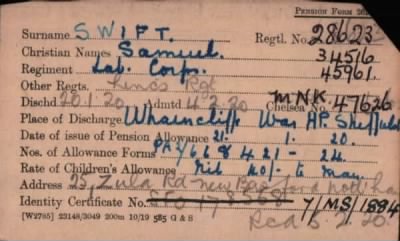 PENSION FORM 26
Surname SWIFT. Regtl. No. 28623
Christian Names Samuel. 34516
Regiment Lab. Corps. 45961.
Other Regts. Lincs Rgt
Dischd 20.1.20. Admtd 4.2.20 M.N.K. Chelsea No. 47626
Place of Discharge Wharncliffe War HP. Sheffield
Date of issue of Pension Allowance 21. 1. 20.
Nos. of Allowance Forms 24
Rate of Children's Allowance Nil 40/- to
Address 25, Zula Rd New Basford Nott'ham
Identity Certificate No. SFO 178568 7/MS/1894
[W2785] 23148/3049 200m 10/19 585 G & S Recd 5.2.20